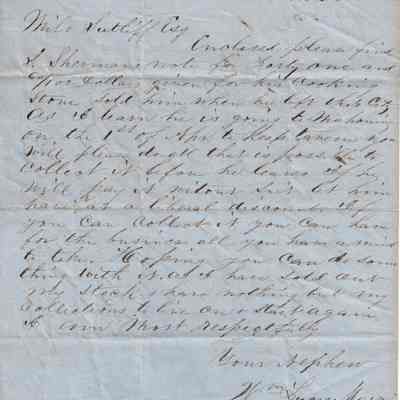 Milo Sutliff Esq
Enclosed please find
L Shermans note for forty one and
Dollars given for his Cooking
Stove sold him when he left this City
As I learn he is going to
on the 1st of Apr to keep tavern you
will please do all that is possible to
collect it before he leaves If he
will pay it without Suit let him
have a liberal discount If
you can collect it you can have
for the business all you have a mind
to take Hoping you can do some
thing with it as I have sold out
my stock & have nothing but my
Collections to live on & start again
I am Most Respectfully
Your Nephew
Wm